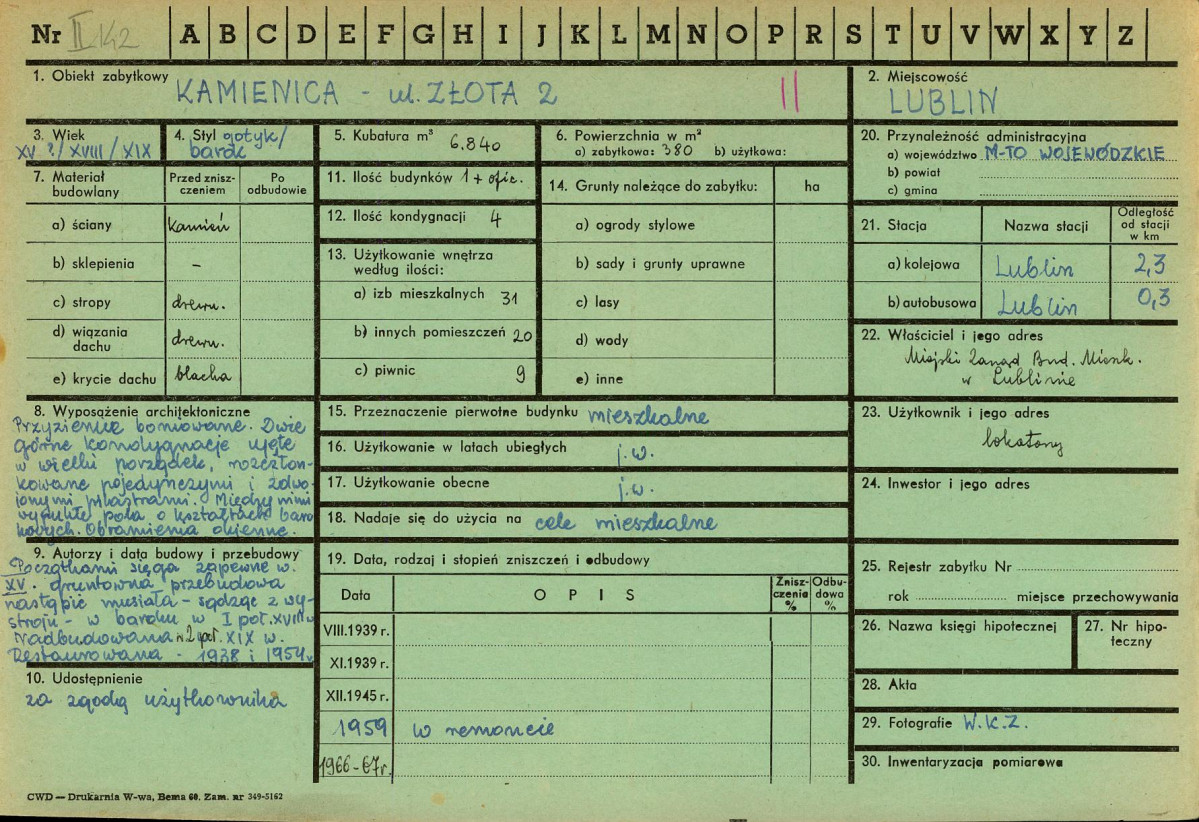 Nr II 142 A B C D E F G H I J K L M N O P R S T U V W X Y Z
1. Obiekt zabytkowy KAMIENICA - ul. ZŁOTA 2 II
2. Miejscowość
LUBLIN
3. Wiek
XV ?/XVIII/XIX
4. Styl gotyk/
barok
5. Kubatura m³ 6.840
6. Powierzchnia w m²
a) zabytkowa: 380 b) użytkowa:
7. Materiał
budowlany
Przed znisz-
czeniem
Po
odbudowie
a) ściany kamień
b) sklepienia –
c) stropy drewn.
d) wiązania
dachu drewn.
e) krycie dachu blacha
11. Ilość budynków 1 + ofic.
12. Ilość kondygnacji 4
13. Użytkowanie wnętrza
według ilości:
a) izb mieszkalnych 31
b) innych pomieszczeń 20
c) piwnic 9
14. Grunty należące do zabytku: ha
a) ogrody stylowe
b) sady i grunty uprawne
c) lasy
d) wody
e) inne
20. Przynależność administracyjna
a) województwo M-TO WOJEWÓDZKIE
b) powiat
c) gmina
21. Stacja Nazwa stacji
Odległość
od stacji
w km
a) kolejowa Lublin 2,3
b) autobusowa Lublin 0,3
22. Właściciel i jego adres
Miejski Zarząd Bud. Mieszk.
w Lublinie
8. Wyposążenie architektoniczne
Przyziemie boniowane. Dwie
górne kondygnacje ujęte
w wielki porządek, rozczłon-
kowane pojedynczymi i zdwo-
jonymi pilastrami. Między nimi
wypukłe pola o kształtach baro
kowych. Obramienia okienne.
9. Autorzy i data budowy i przebudowy
Początkami sięga zapewne w.
XV. gruntowna przebudowa
nastąpić musiała - sądząc z wy-
stroju - w baroku w I poł. XVIII w
Nadbudowana w 2 poł. XIX w.
Restaurowana - 1938 i 1954 r.
10. Udostępnienie
za zgodą użytkownika
15. Przeznaczenie pierwotne budynku mieszkalne
16. Użytkowanie w latach ubiegłych j.w.
17. Użytkowanie obecne j.w.
18. Nadaje się do użycia na cele mieszkalne
19. Data, rodzaj i stopień zniszczeń i odbudowy
Data OPIS
Znisz-
czenia
%
Odbu-
dowa
%
VIII.1939 r.
XI.1939 r.
XII.1945 r.
1959 w remoncie
1966-67r.
23. Użytkownik i jego adres
lokatorzy
24. Inwestor i jego adres
25. Rejestr zabytku Nr
rok miejsce przechowywania
26. Nazwa księgi hipotecznej
27. Nr hipo-
teczny
28. Akta
29. Fotografie W.K.Z.
30. Inwentaryzacja pomiarowa
CWD — Drukarnia W-wa, Bema 60. Zam. nr 349-5162